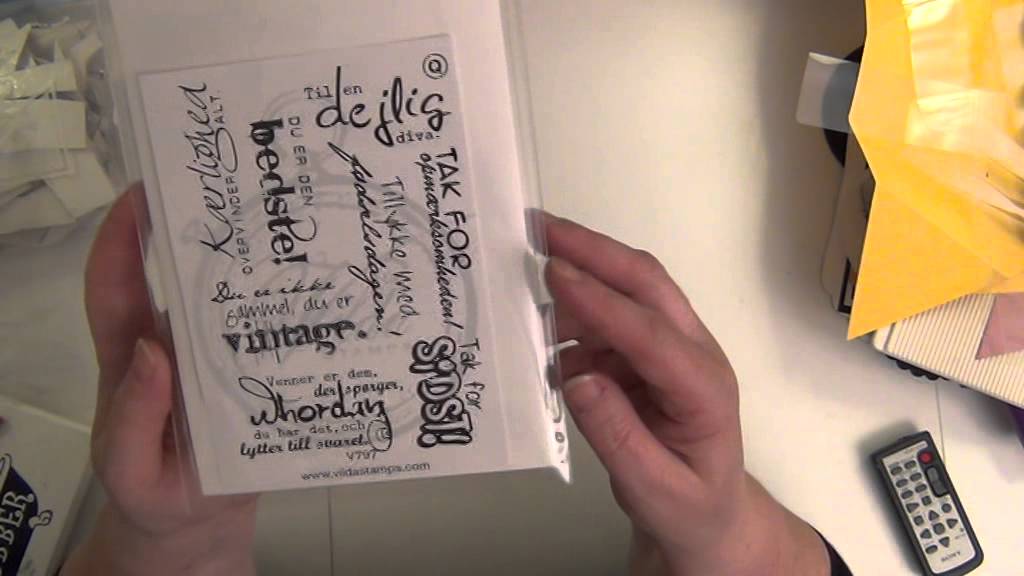 Til en
dejlig
diva.
Kærlighed
OVERVINDER ALT.
DU ER DEN
bedste!
Tillykke med
fødselsdagen.
TAK FOR
opmærksomheden!
Du er ikke
gammel, du er
vintage.
Tak for
SIDST!
Venner er dem,
der spørger,
hvordan
du har det, och
lytter till svaret.
V797
www.vildastamps.com
BBER
SONY